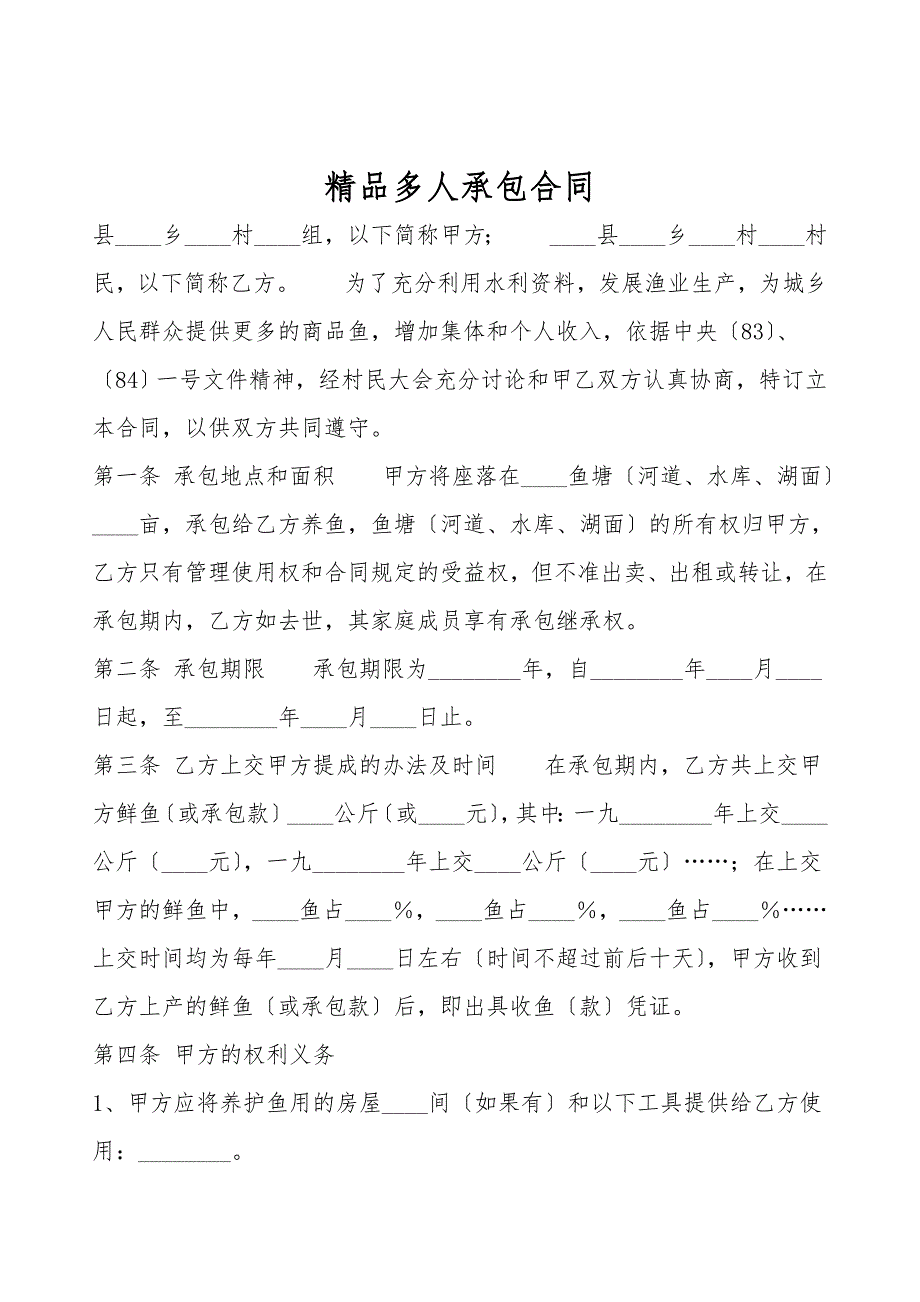 精品多人承包合同
县____乡____村____组，以下简称甲方；　　____县____乡____村____村
民，以下简称乙方。　　为了充分利用水利资料，发展渔业生产，为城乡
人民群众提供更多的商品鱼，增加集体和个人收入，依据中央〔83〕、
〔84〕一号文件精神，经村民大会充分讨论和甲乙双方认真协商，特订立
本合同，以供双方共同遵守。
第一条 承包地点和面积　　甲方将座落在____鱼塘〔河道、水库、湖面〕
____亩，承包给乙方养鱼，鱼塘〔河道、水库、湖面〕的所有权归甲方，
乙方只有管理使用权和合同规定的受益权，但不准出卖、出租或转让，在
承包期内，乙方如去世，其家庭成员享有承包继承权。
第二条 承包期限　　承包期限为________年，自________年____月____
日起，至________年____月____日止。
第三条 乙方上交甲方提成的办法及时间　　在承包期内，乙方共上交甲
方鲜鱼〔或承包款〕____公斤〔或____元〕，其中：一九________年上交____
公斤〔____元〕，一九________年上交____公斤〔____元〕……；在上交
甲方的鲜鱼中，____鱼占____％，____鱼占____％，____鱼占____％……
上交时间均为每年____月____日左右〔时间不超过前后十天〕，甲方收到
乙方上产的鲜鱼〔或承包款〕后，即出具收鱼〔款〕凭证。
第四条 甲方的权利义务
1、甲方应将养护鱼用的房屋____间〔如果有〕和以下工具提供给乙方使
用：________。